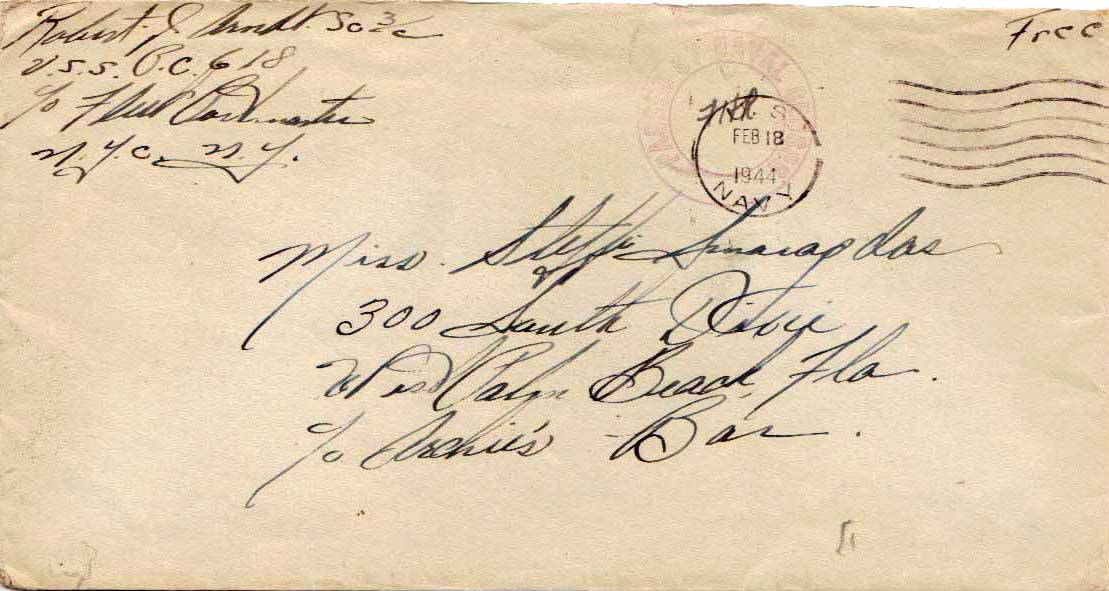 Robert J. Arndt So 3/c
U.S.S. P.C. 618
c/o Fleet Postmaster
N.Y.C. N.Y.
Free
U. S.
FEB 18
1944
NAVY
PASSED BY NAVAL CENSOR
Miss. Steffi Smaragdas
300 South Dixie
West Palm Beach, Fla.
c/o Archie's Bar.